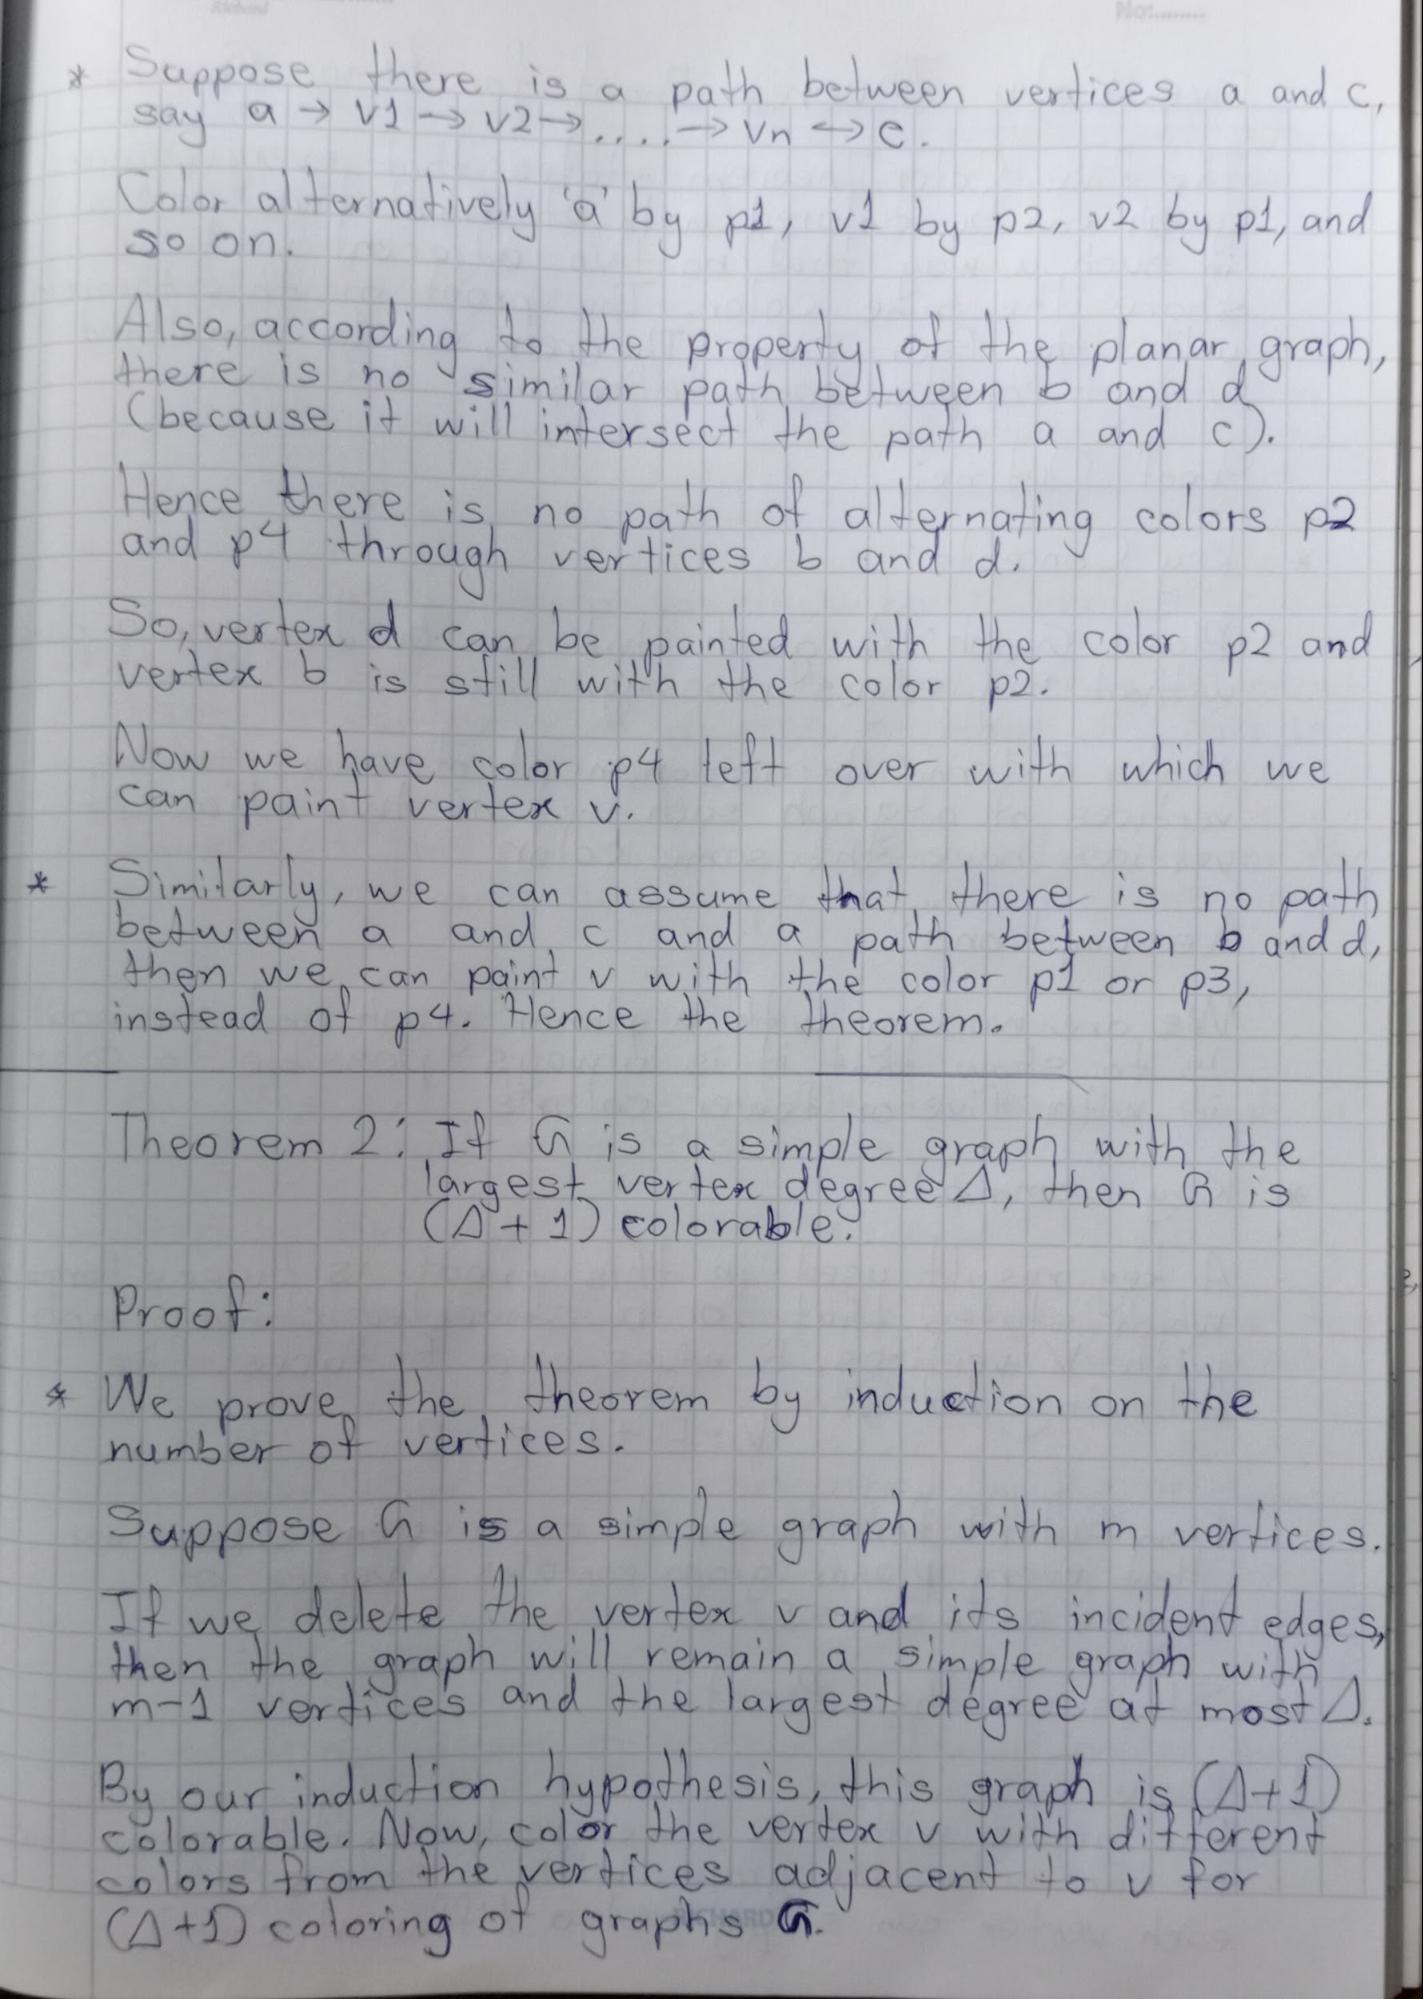 Richard
No:........
* Suppose there is a path between vertices a and c,
say a → v1 → v2 → ..... → vn ↔ c.
Color alternatively 'a' by p1, v1 by p2, v2 by p1, and
so on.
Also, according to the property of the planar graph,
there is no similar path between b and d
(because it will intersect the path a and c).
Hence there is no path of alternating colors p2
and p4 through vertices b and d.
So, vertex d can be painted with the color p2 and
vertex b is still with the color p2.
Now we have color p4 left over with which we
can paint vertex v.
* Similarly, we can assume that there is no path
between a and c and a path between b and d,
then we can paint v with the color p1 or p3,
instead of p4. Hence the theorem.
Theorem 2: If G is a simple graph with the
largest vertex degree Δ, then G is
(Δ + 1) colorable.
Proof:
* We prove the theorem by induction on the
number of vertices.
Suppose G is a simple graph with m vertices.
If we delete the vertex v and its incident edges,
then the graph will remain a simple graph with
m-1 vertices and the largest degree at most Δ.
By our induction hypothesis, this graph is (Δ+1)
colorable. Now, color the vertex v with different
colors from the vertices adjacent to v for
(Δ+1) coloring of graphs G.